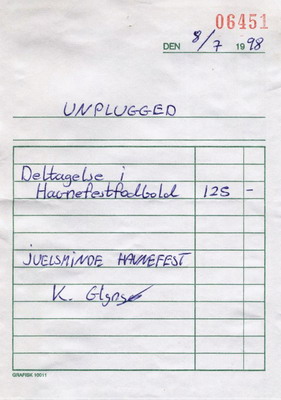 06451
DEN 8/7 1998
UNPLUGGED
Deltagelse i
Havnefestfodbold 125 -
JUELSMINDE HAVNEFEST
K.
GRAFISK 98011